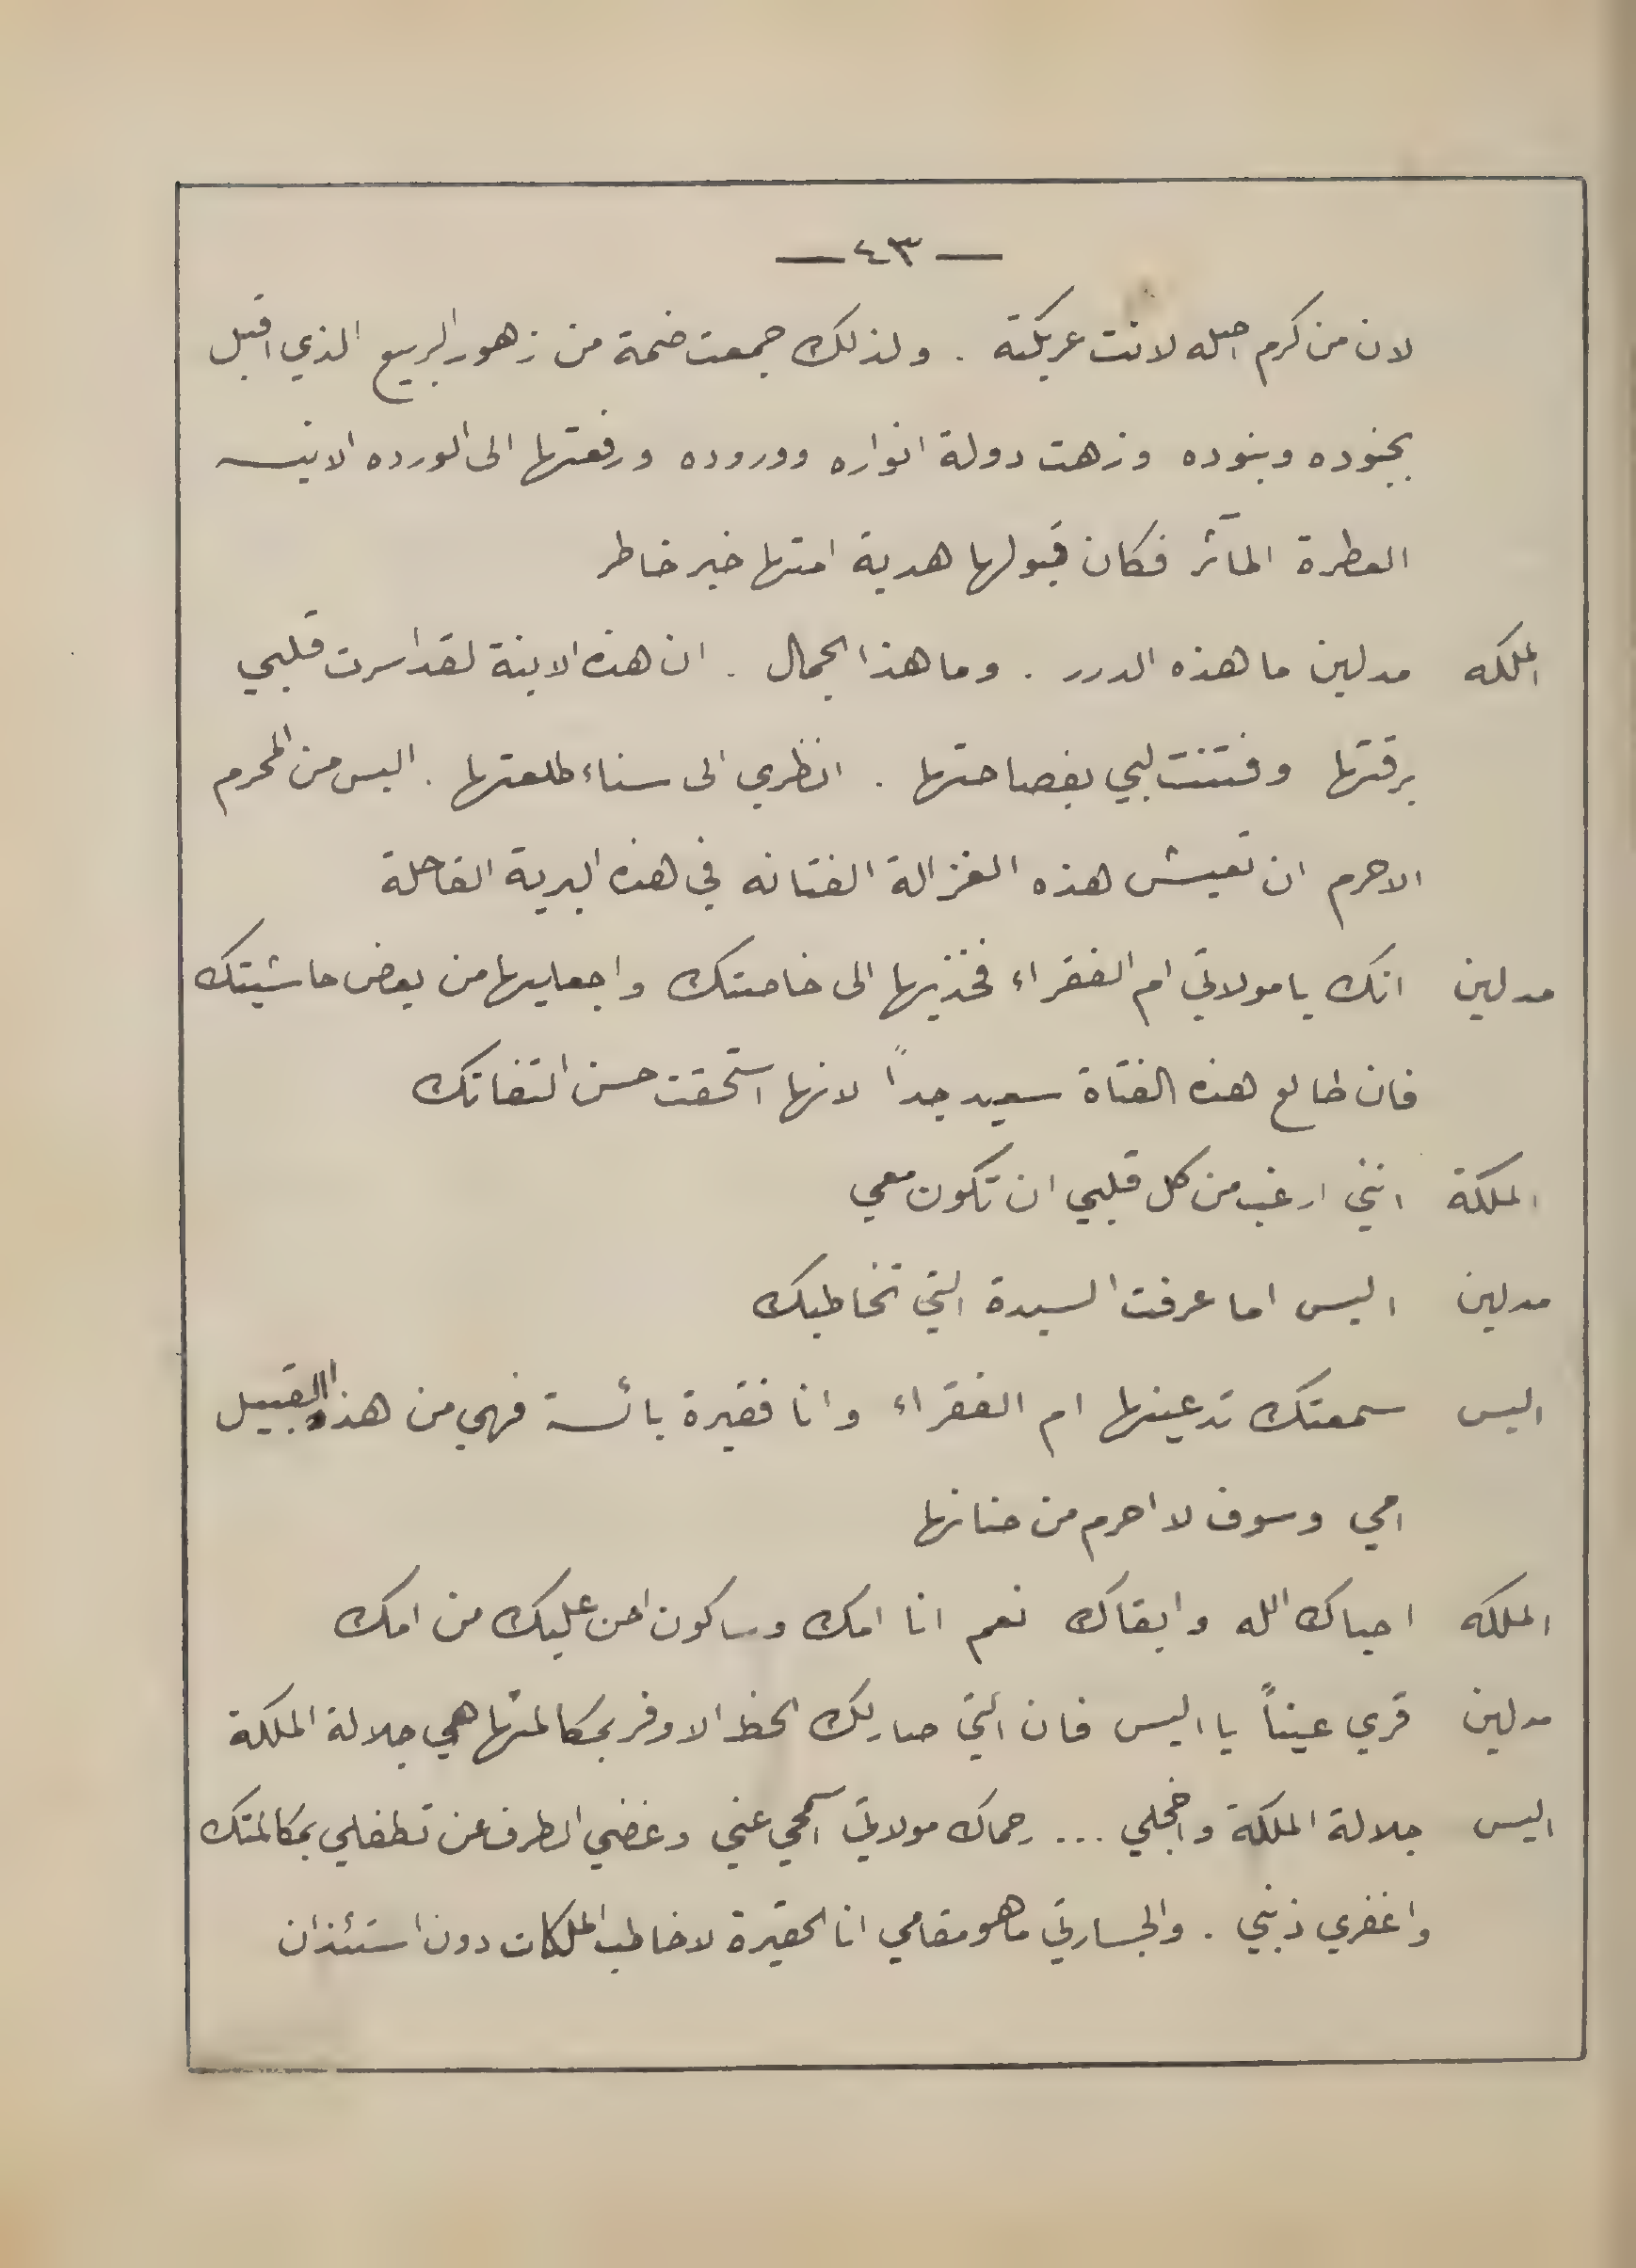 — ٤٣ —
لان من كرم اصله لانت عريكته . ولذلك جمعت ضمة من زهور الربيع الذي اقبل
بجنوده وبنوده وزهت دولة انواره ووروده ورفعتها الى الورده الانيسه
العطرة المآثر فكان قبولها هدية امتها خير خاطر
الملكه مدلين ما هذه الدرر . وما هذا الجمال . ان هذه الابنة لقد اسرت قلبي
برقتها وفتنت لبي بفصاحتها . انظري الى سناء طلعتها . اليس من المحرم
الاحرم ان تعيش هذه الغزالة الفتانه في هذه البرية القاحلة
مدلين انك يا مولاتي ام الفقراء فخذيها الى خاصتك واجعليها من بعض حاشيتك
فان طالع هذه الفتاة سعيد جداً لانها استحقت حسن التفاتك
الملكة انني ارغب من كل قلبي ان تكون معي
مدلين اليس اما عرفت السيدة التي تخاطبك
اليس سمعتك تدعينها ام الفقراء وانا فقيرة بائسة فهي من هذا القبيل
امي وسوف لا احرم من حنانها
الملكه احياك الله وابقاك نعم انا امك وساكون احن عليك من امك
مدلين قري عيناً يا اليس فان التي صار لك الحظ الاوفر بمكالمتها هي جلالة الملكة
اليس جلالة الملكة واخجلي ... رحماك مولاتي اسمحي عني وغضي الطرف عن تطفلي بمكالمتك
واغفري ذنبي . والجسارتي ما هو مقامي انا الحقيرة لاخاطب الملكات دون استئذان